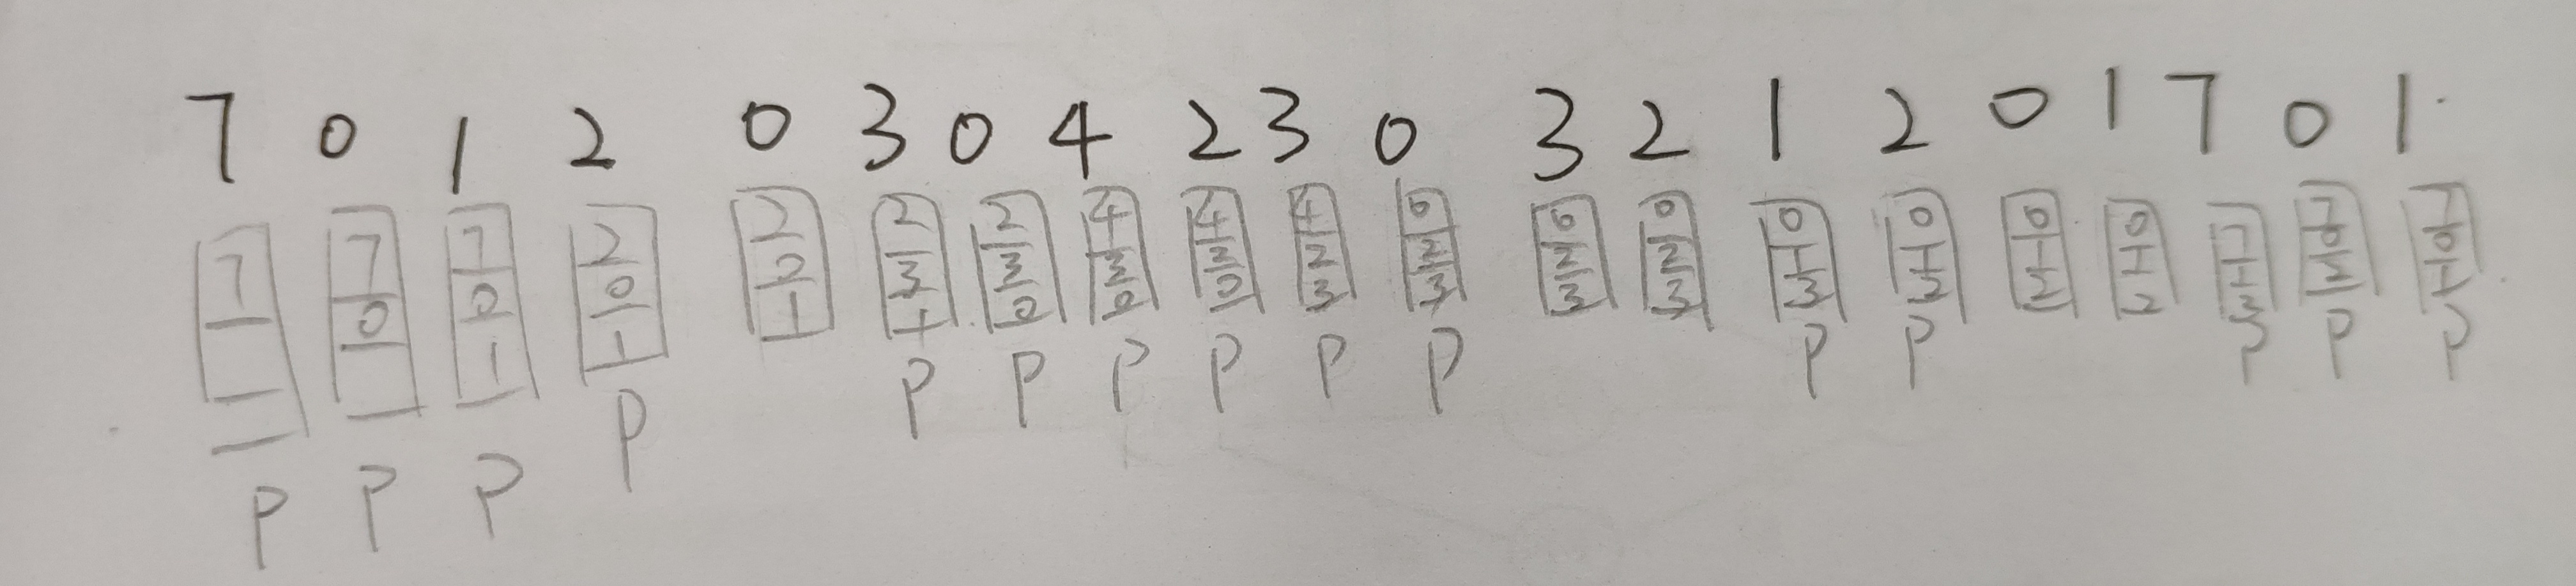 7 0 1 2 0 3 0 4 2 3 0 3 2 1 2 0 1 7 0 1
7 7 7 2 2 2 2 4 4 4 0 0 0 0 0 0 0 7 7 7
0 0 0 0 3 3 3 2 2 2 2 2 1 1 1 1 1 0 0
1 1 1 1 0 0 0 3 3 3 3 3 2 2 2 2 2 1
P P P P P P P P P P P P P P P